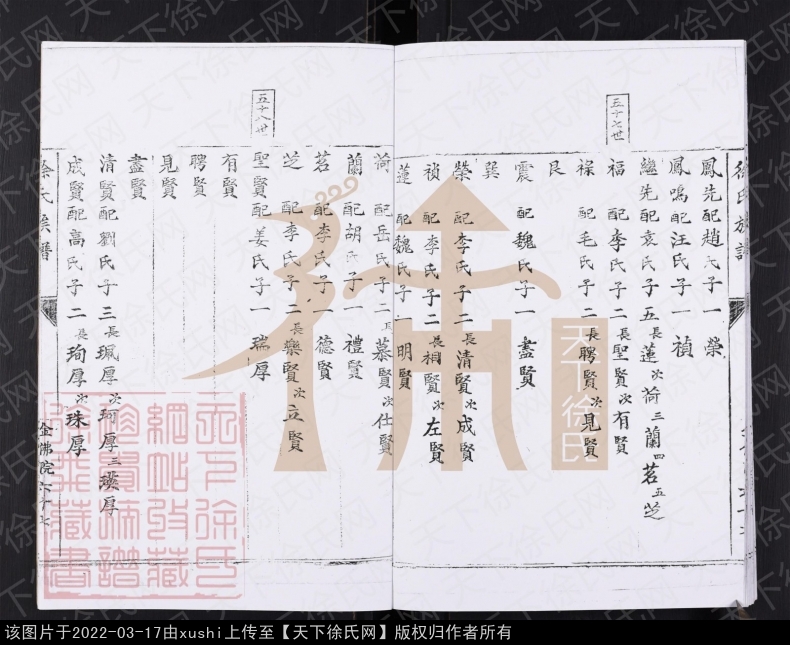 徐氏族譜
五十七世
鳳先配趙氏子一 榮
鳳鳴配汪氏子一 禎
繼先配袁氏子五長蓮次荷三蘭四茗五芝
福 配李氏子二長聖賢次有賢
祿 配毛氏子二長聘賢次見賢
艮
震 配魏氏子一 盡賢
巽
榮 配李氏子二長清賢次成賢
禎 配李氏子二長相賢次左賢
蓮 配魏氏子一 明賢
五十八世
荷 配岳氏子二長慕賢次仕賢
蘭 配胡氏子一 禮賢
茗 配李氏子一 德賢
芝 配李氏子二長樂賢次立賢
聖賢配姜氏子一 瑞厚
有賢
聘賢
見賢
盡賢
清賢配劉氏子三長珮厚次珂厚三瑛厚
成賢配高氏子二長珣厚次珠厚
徐氏族譜
金佛院六十七
天下徐氏
天下徐氏网
该图片于2022-03-17由xushi上传至【天下徐氏网】版权归作者所有